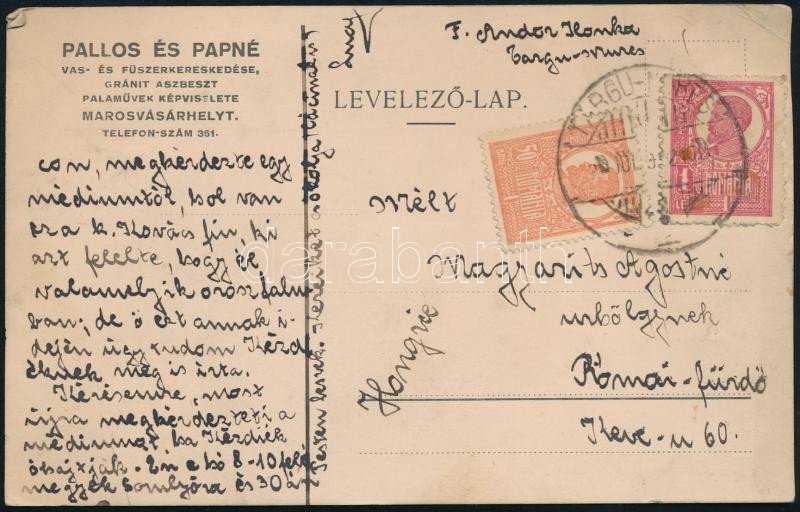 PALLOS ÉS PAPNÉ
VAS- ÉS FÜSZERKERESKEDÉSE,
GRÁNIT ASZBESZT
PALAMŰVEK KÉPVISELETE
MAROSVÁSÁRHELYT.
TELEFON-SZÁM 361.
con, megkérdezte egy
médiumtól, hol van
ez a k. Kovács fiu, ki
azt felelte, hogy él,
valamelyik orosz falu
ban; de ő ezt annak i-
dején úgy tudom Kézdi
éknek meg is irta.
Kérésemre, most
ujra megkérdezteti a
médiumot, ha Kézdiék
óhajtják. Én e hó 8-10 felé
megyek Somlyóra és 30 án
Pesten leszek. Kezeiket csókolja
F. Andor Ilonka
Targu-Mures
LEVELEZŐ-LAP.
50 ROMANIA
1 LEU ROMANIA
Mélt
Magyarits Ágostné
urhölgynek
Római-fürdő
Keve-u 60.
Hongrie
darabanth